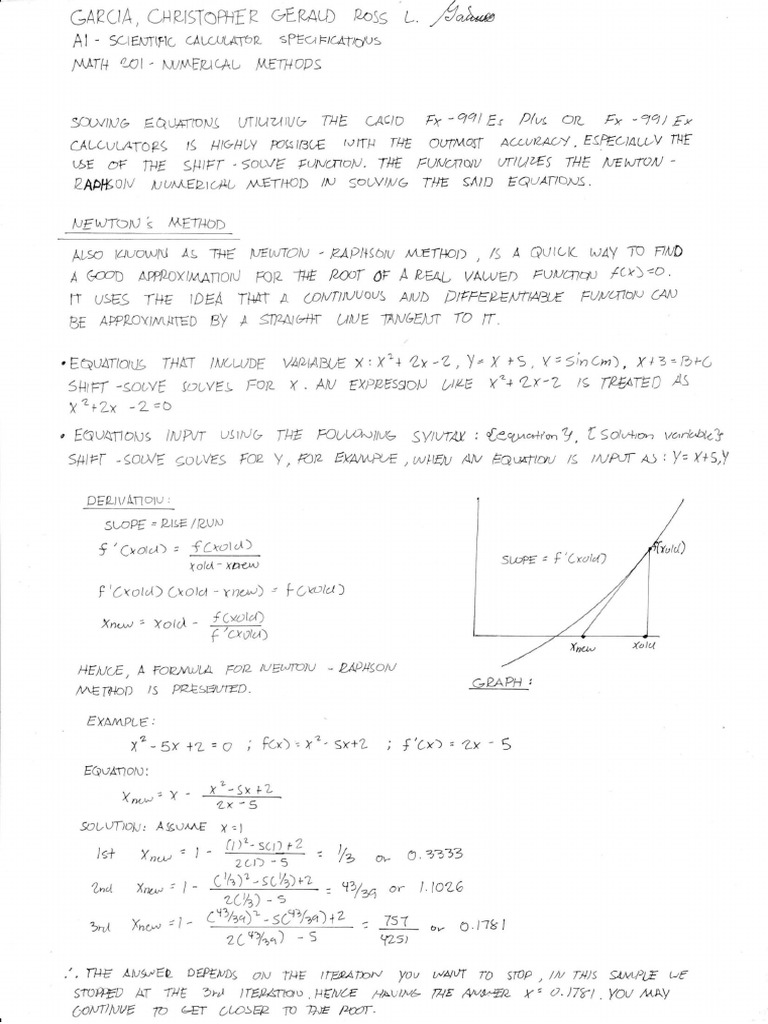 GARCIA, CHRISTOPHER GERALD ROSS L.
A1 - SCIENTIFIC CALCULATOR SPECIFICATIONS
MATH 201 - NUMERICAL METHODS
SOLVING EQUATIONS UTILIZING THE CASIO Fx-991 Es Plus OR Fx-991 Ex
CALCULATORS IS HIGHLY POSSIBLE WITH THE OUTMOST ACCURACY. ESPECIALLY THE
USE OF THE SHIFT-SOLVE FUNCTION. THE FUNCTION UTILIZES THE NEWTON-
RAPHSON NUMERICAL METHOD IN SOLVING THE SAID EQUATIONS.
NEWTON's METHOD
ALSO KNOWN AS THE NEWTON-RAPHSON METHOD, IS A QUICK WAY TO FIND
A GOOD APPROXIMATION FOR THE ROOT OF A REAL VALUED FUNCTION f(x)=0.
IT USES THE IDEA THAT A CONTINUOUS AND DIFFERENTIABLE FUNCTION CAN
BE APPROXIMATED BY A STRAIGHT LINE TANGENT TO IT.
• EQUATIONS THAT INCLUDE VARIABLE X: X²+2x-2, Y=X+5, X=Sin(m), X+3=B+C
SHIFT-SOLVE SOLVES FOR X. AN EXPRESSION LIKE X²+2X-2 IS TREATED AS
X²+2x-2=0
• EQUATIONS INPUT USING THE FOLLOWING SYNTAX: {equation}, {Solution variable}
SHIFT-SOLVE SOLVES FOR Y, FOR EXAMPLE, WHEN AN EQUATION IS INPUT AS: Y=X+5,Y
DERIVATION:
SLOPE = RISE/RUN
f'(xold) = f(xold) / xold-xnew
f'(xold)(xold-xnew) = f(xold)
xnew = xold - f(xold) / f'(xold)
HENCE, A FORMULA FOR NEWTON-RAPHSON
METHOD IS PRESENTED.
SLOPE = f'(xold)
f(xold)
xnew xold
GRAPH:
EXAMPLE:
x²-5x+2=0 ; f(x)=x²-5x+2 ; f'(x)=2x-5
EQUATION:
xnew = x - x²-5x+2 / 2x-5
SOLUTION: ASSUME x=1
1st xnew = 1 - (1)²-5(1)+2 / 2(1)-5 = 1/3 or 0.3333
2nd xnew = 1 - (1/3)²-5(1/3)+2 / 2(1/3)-5 = 43/39 or 1.1026
3rd xnew = 1 - (43/39)²-5(43/39)+2 / 2(43/39)-5 = 757/4251 or 0.1781
∴ THE ANSWER DEPENDS ON THE ITERATION YOU WANT TO STOP, IN THIS SAMPLE WE
STOPPED AT THE 3rd ITERATION. HENCE HAVING THE ANSWER X=0.1781. YOU MAY
CONTINUE TO GET CLOSER TO THE ROOT.